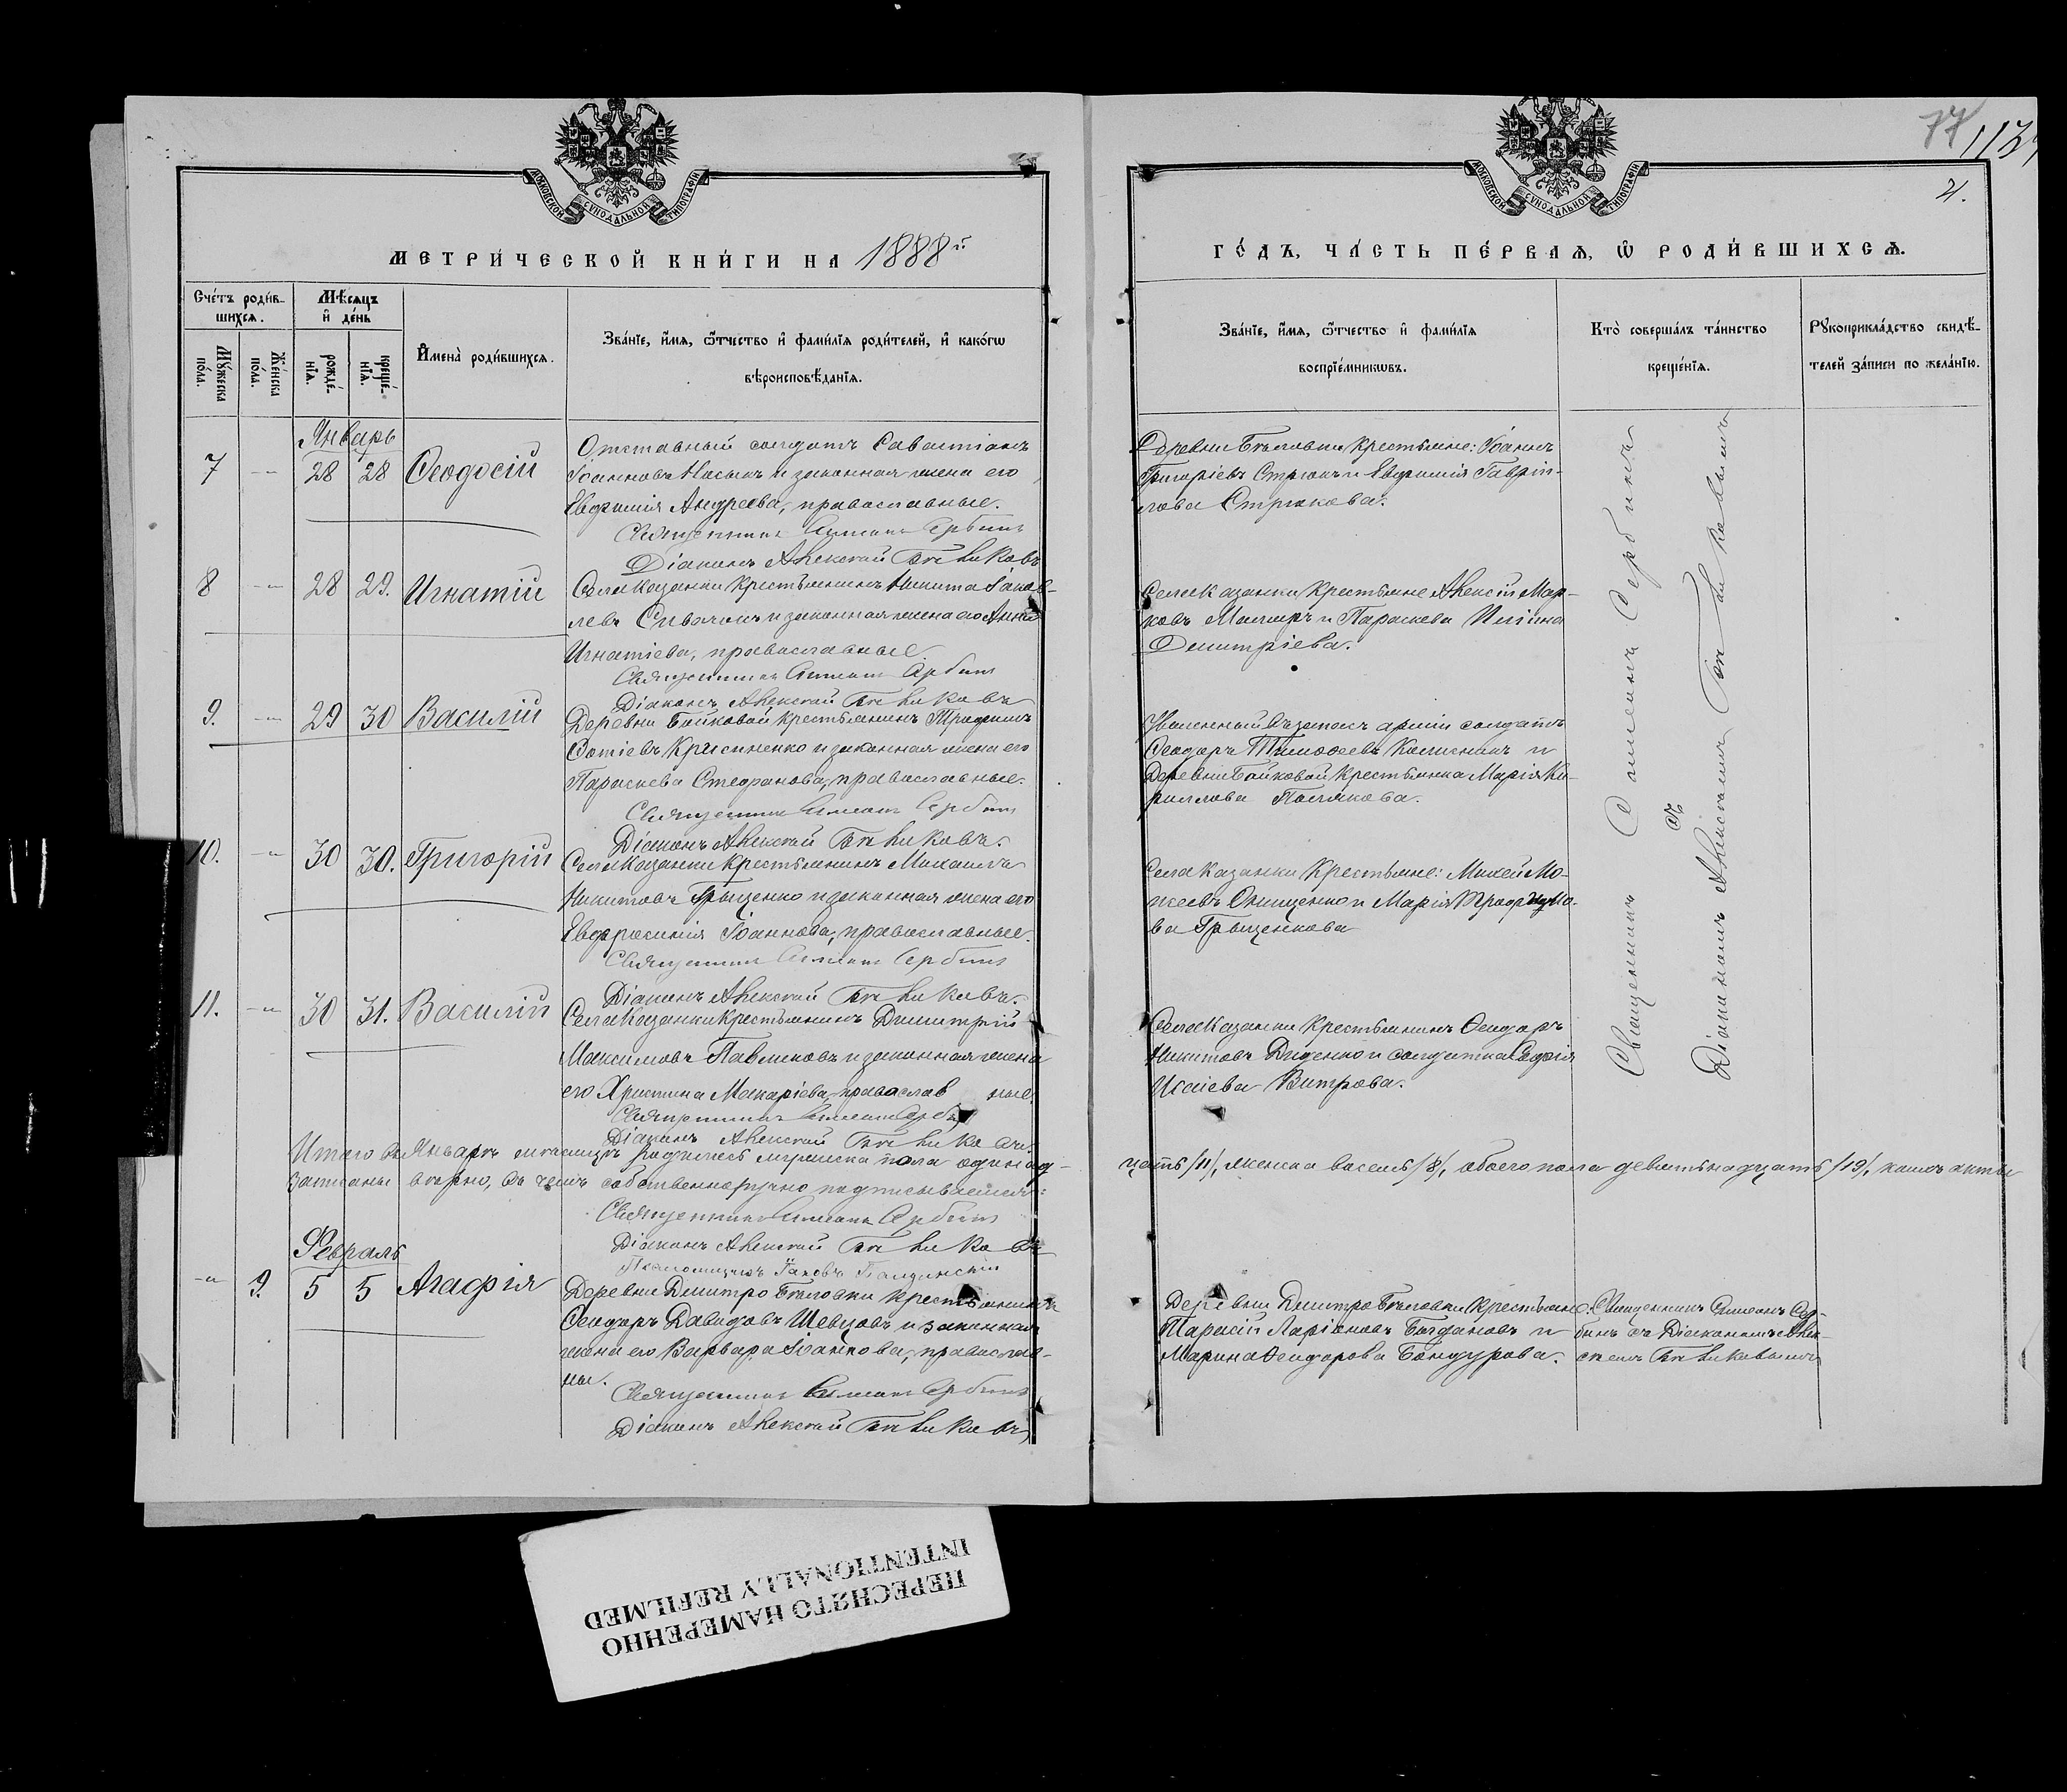 77
113
4.
МОСКОВСКОЙ СѴНОДАЛЬНОЙ ТИПОГРАФІИ
МОСКОВСКОЙ СѴНОДАЛЬНОЙ ТИПОГРАФІИ
МЕТРИ́ЧЕСКОЙ КНИ́ГИ НА 1888й
ГО́ДЪ, ЧА́СТЬ ПЕ́РВАѦ, Ѿ РОДИ́ВШИХСѦ.
Сче́тъ роди́в-
шихсѧ.
Мѣ́сѧцъ
и҆ де́нь
Мꙋ́жеска
по́ла.
Же́нска
по́ла.
рожде́-
нїѧ.
креще́-
нїѧ.
И҆мена̀ роди́вшихсѧ.
Зва́нїе, и҆́мѧ, ѻ҆́тчество и҆ фамѝлїѧ роди́телей, и҆ како́гѡ
вѣроисповѣ́данїѧ.
Зва́нїе, и҆́мѧ, ѻ҆́тчество и҆ фамѝлїѧ
воспрїе́мникѡвъ.
Кто̀ соверша́лъ та́инство
креще́нїѧ.
Рꙋкоприкла́дство свидѣ́-
телей за́писи по жела́нїю.
Январь
7 -"- 28 28 Ѳеодосій
Отставный солдатъ Савастіанъ
Іоанновъ Носыкъ и законная жена его
Евфимія Андреева, православные.
Священникъ Симеонъ Сербинъ
Діаконъ Алексѣй
Деревни Бѣловки крестьяне: Іоаннъ
Григоріевъ Стрюкъ и Евфимія Гаврі-
лова Стрюкова.
8 -"- 28 29. Игнатій
Села Казанки крестьянинъ Никита Іаков-
левъ Сивачикъ и законная жена его Анна
Игнатіева, православные
Священникъ Симеонъ Сербинъ
Діаконъ Алексѣй
Села Казанки крестьяне Алексій Мар-
ковъ Маляръ и Параскева
Димитріева.
9. -"- 29 30 Василій
Деревни Байковой крестьянинъ Трофимъ
Фотіевъ Крисиненко и законная жена его
Параскева Стефанова, православные.
Священникъ Симеонъ Сербинъ
Діаконъ Алексѣй
Уволенный въ запасъ арміи солдатъ
Ѳеодоръ Тимоѳеевъ Калиникъ и
Деревни Байковой крестьянка Марія Ки-
риллова Полякова.
10. -"- 30 30. Григорій
Села Казанки крестьянинъ Михаилъ
Никитовъ Грыценко и законная жена его
Евфросинія Іоаннова, православные.
Священникъ Симеонъ Сербинъ
Діаконъ Алексѣй
Села Казанки крестьяне: Михей Мо-
кеевъ Онищенко и Марія Трофимо-
ва Грыценкова
11. -"- 30 31. Василій
Села Казанки крестьянинъ Димитрій
Максимовъ Павликовъ и законная жена
его Христина Макаріева, православ ные.
Священникъ Симеонъ Сербинъ
Діаконъ Алексѣй
Села Казанки крестьянинъ Ѳеодоръ
Никитовъ Диденко и солдатка Софія
Исаіева Витрова.
Священникъ Симеонъ Сербинъ
съ
Діакономъ Алексѣемъ
Итого въ Январѣ мѣсяцѣ родилось мужеска пола одинад-
цать /11/, женска восемь /8/, обоего пола девятьнадцать /19/, каковъ акты
записаны вѣрно, въ чемъ собственноручно подписываемся:
Священникъ Симеонъ Сербинъ
Діаконъ Алексѣй
Псаломщикъ Іаковъ
Февраль
-"- 9. 5 5 Агафія
Деревни Дмитро Бѣловки крестьянинъ
Ѳеодоръ Давидовъ Шевцовъ и законная
жена его Варвара Іоаннова, православ-
ны.
Священникъ Симеонъ Сербинъ
Діаконъ Алексѣй
Деревни Дмитро Бѣловки крестьяне:
Тарасій Ларіоновъ Богдановъ и
Марина Ѳеодорова Бондурова.
Священникъ Симеонъ Сер-
бинъ съ Діакономъ Алек-
сѣемъ
ПЕРЕСНЯТО НАМЕРЕННО
INTENTIONALLY REFILMED